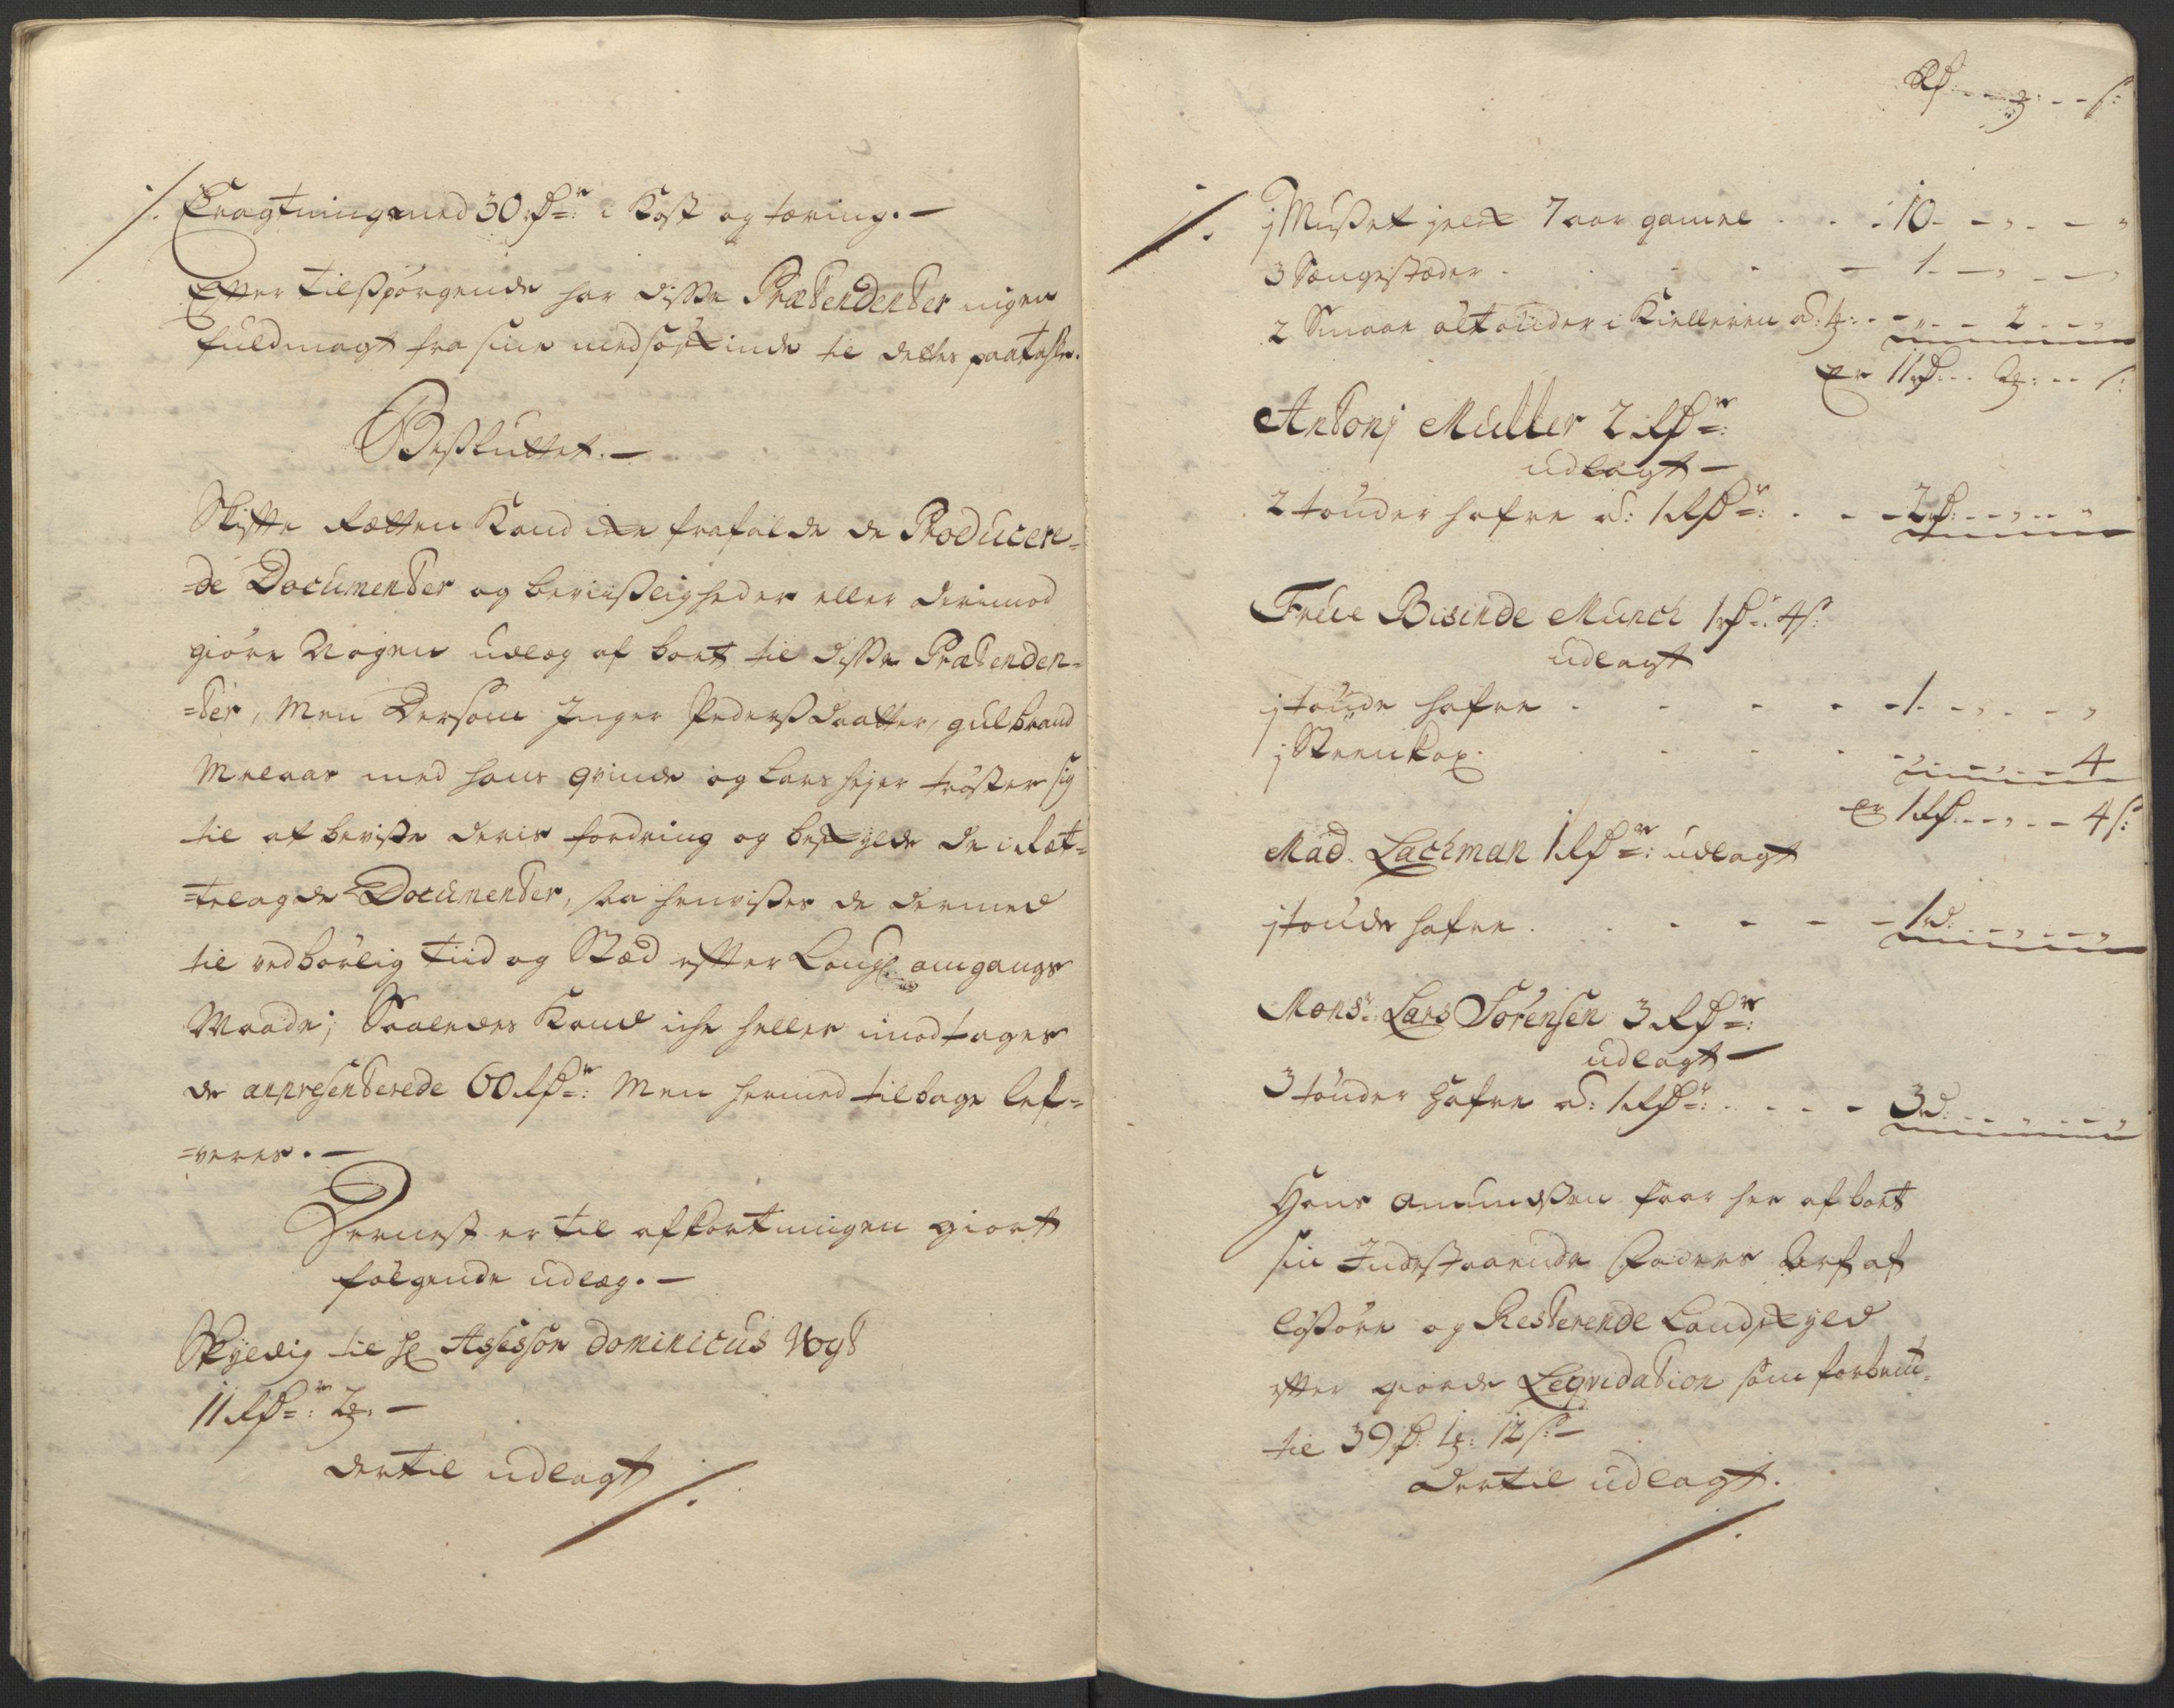 /. Fragtning med 30 Rdr: i Kost og tæring. —
Efter tilspørgende har disse Prætendenter ingen
fuldmagt fra sine medsødskinde til dettes paatale.
Besluttet. —
Skifte Retten Kand icke frafalde de Producere=
=de Documenter og bevisligheder eller derimod
giøre Nogen udlæg af boet til disse Prætenden=
=ter, Men Dersom Inger Pedersdaatter, gulbrand
Melaas med hans qvinde og Lars hejer trøster sig
til at bevise deris fordring og beskylde de i Ret=
=telagde Documenter, saa henvises de dermed
til vedbørlig tiid og Stæd efter Lougl. omgangs
Maade; Saaledes Kand iche heller imodtages
de anpresenterede 60 Rdr: Men hermed tilbage lef=
=veres. —
Dernest er til afkortningen giort
følgende udlæg. —
Skyldig til Hr Assessor Dominicus Vogt
11 Rdr: 2 ₰. —
dertil udlagt
/.
Rd: - - ₰: - - s:
/. j Musset 7 aar gamel . . . 10 - - „ - - „
3 Sængestæder . . . . 1 - - „ - - „
2 Smaae øltønder i Kielleren a: 1₰: - - „ - - 2 - - „
Er 11 Rd: - - 2₰: - - s:
Antonj Muller 2 Rdr:
udlagt —
2 tønder hafre a: 1 Rdr: . . - 2 Rd: - - „ - - „
Frue Bisinde Munch 1 Rdr: 4 s:
udlagt
j tønde hafre . . . . - 1 - - „ - - „
j Steenkop . . . . - „ - - „ - - 4
Er 1 Rd: - - „ - - 4 s:
Mad. Lachman 1 Rdr: udlagt
j tønde hafre . . . . - 1 Rd: - - „ - - „
Monsr. Lars Sørensen 3 Rdr:
udlagt —
3 tønder Hafre a: 1 Rdr: . . . - 3 Rd: - - „ - - „
Hans Amundsen faar her af boet
sin Indestaaende Faders Arf af
løsøre og Resterende Landskyld
efter giorde Leqvidation som forbem.
til 39 Rd: 1₰: 12 s: —
dertil udlagt.
/.